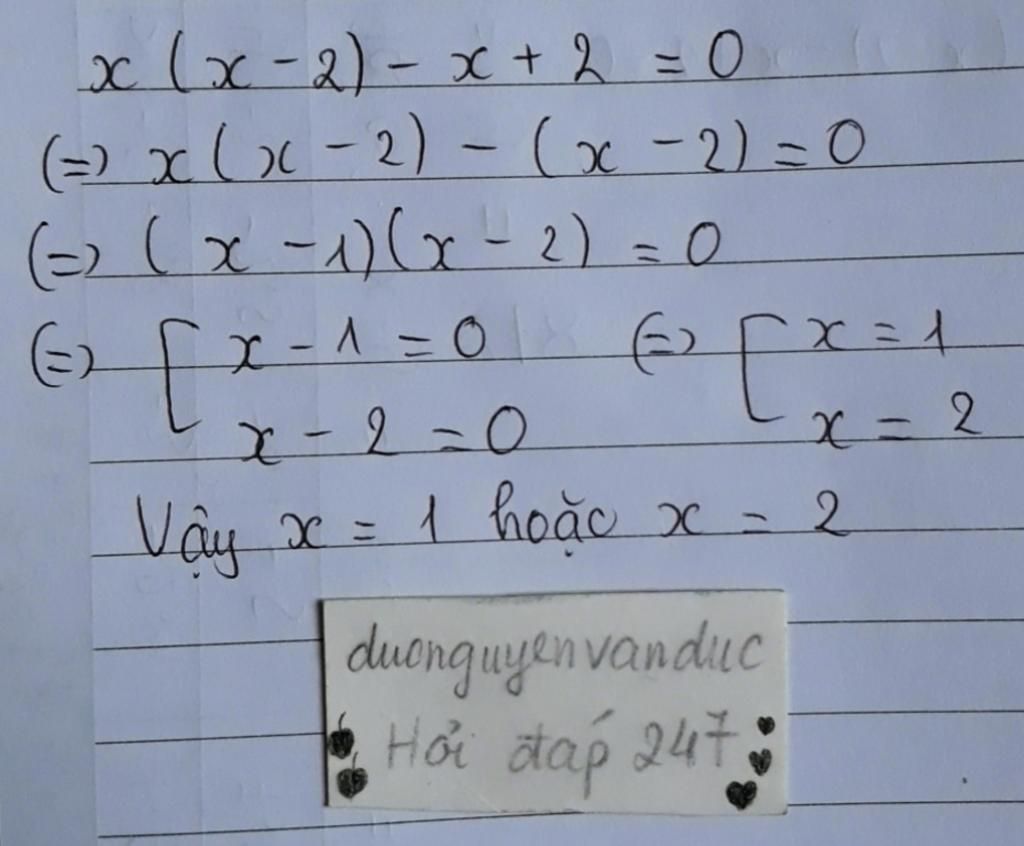 x(x-2)-x+2=0
(=) x(x-2)-(x-2)=0
(=) (x-1)(x-2)=0
(=) [x-1=0 (=) [x=1
x-2=0 x=2
Vậy x=1 hoặc x=2
ducnguyenvanduc
Hỏi đáp 247